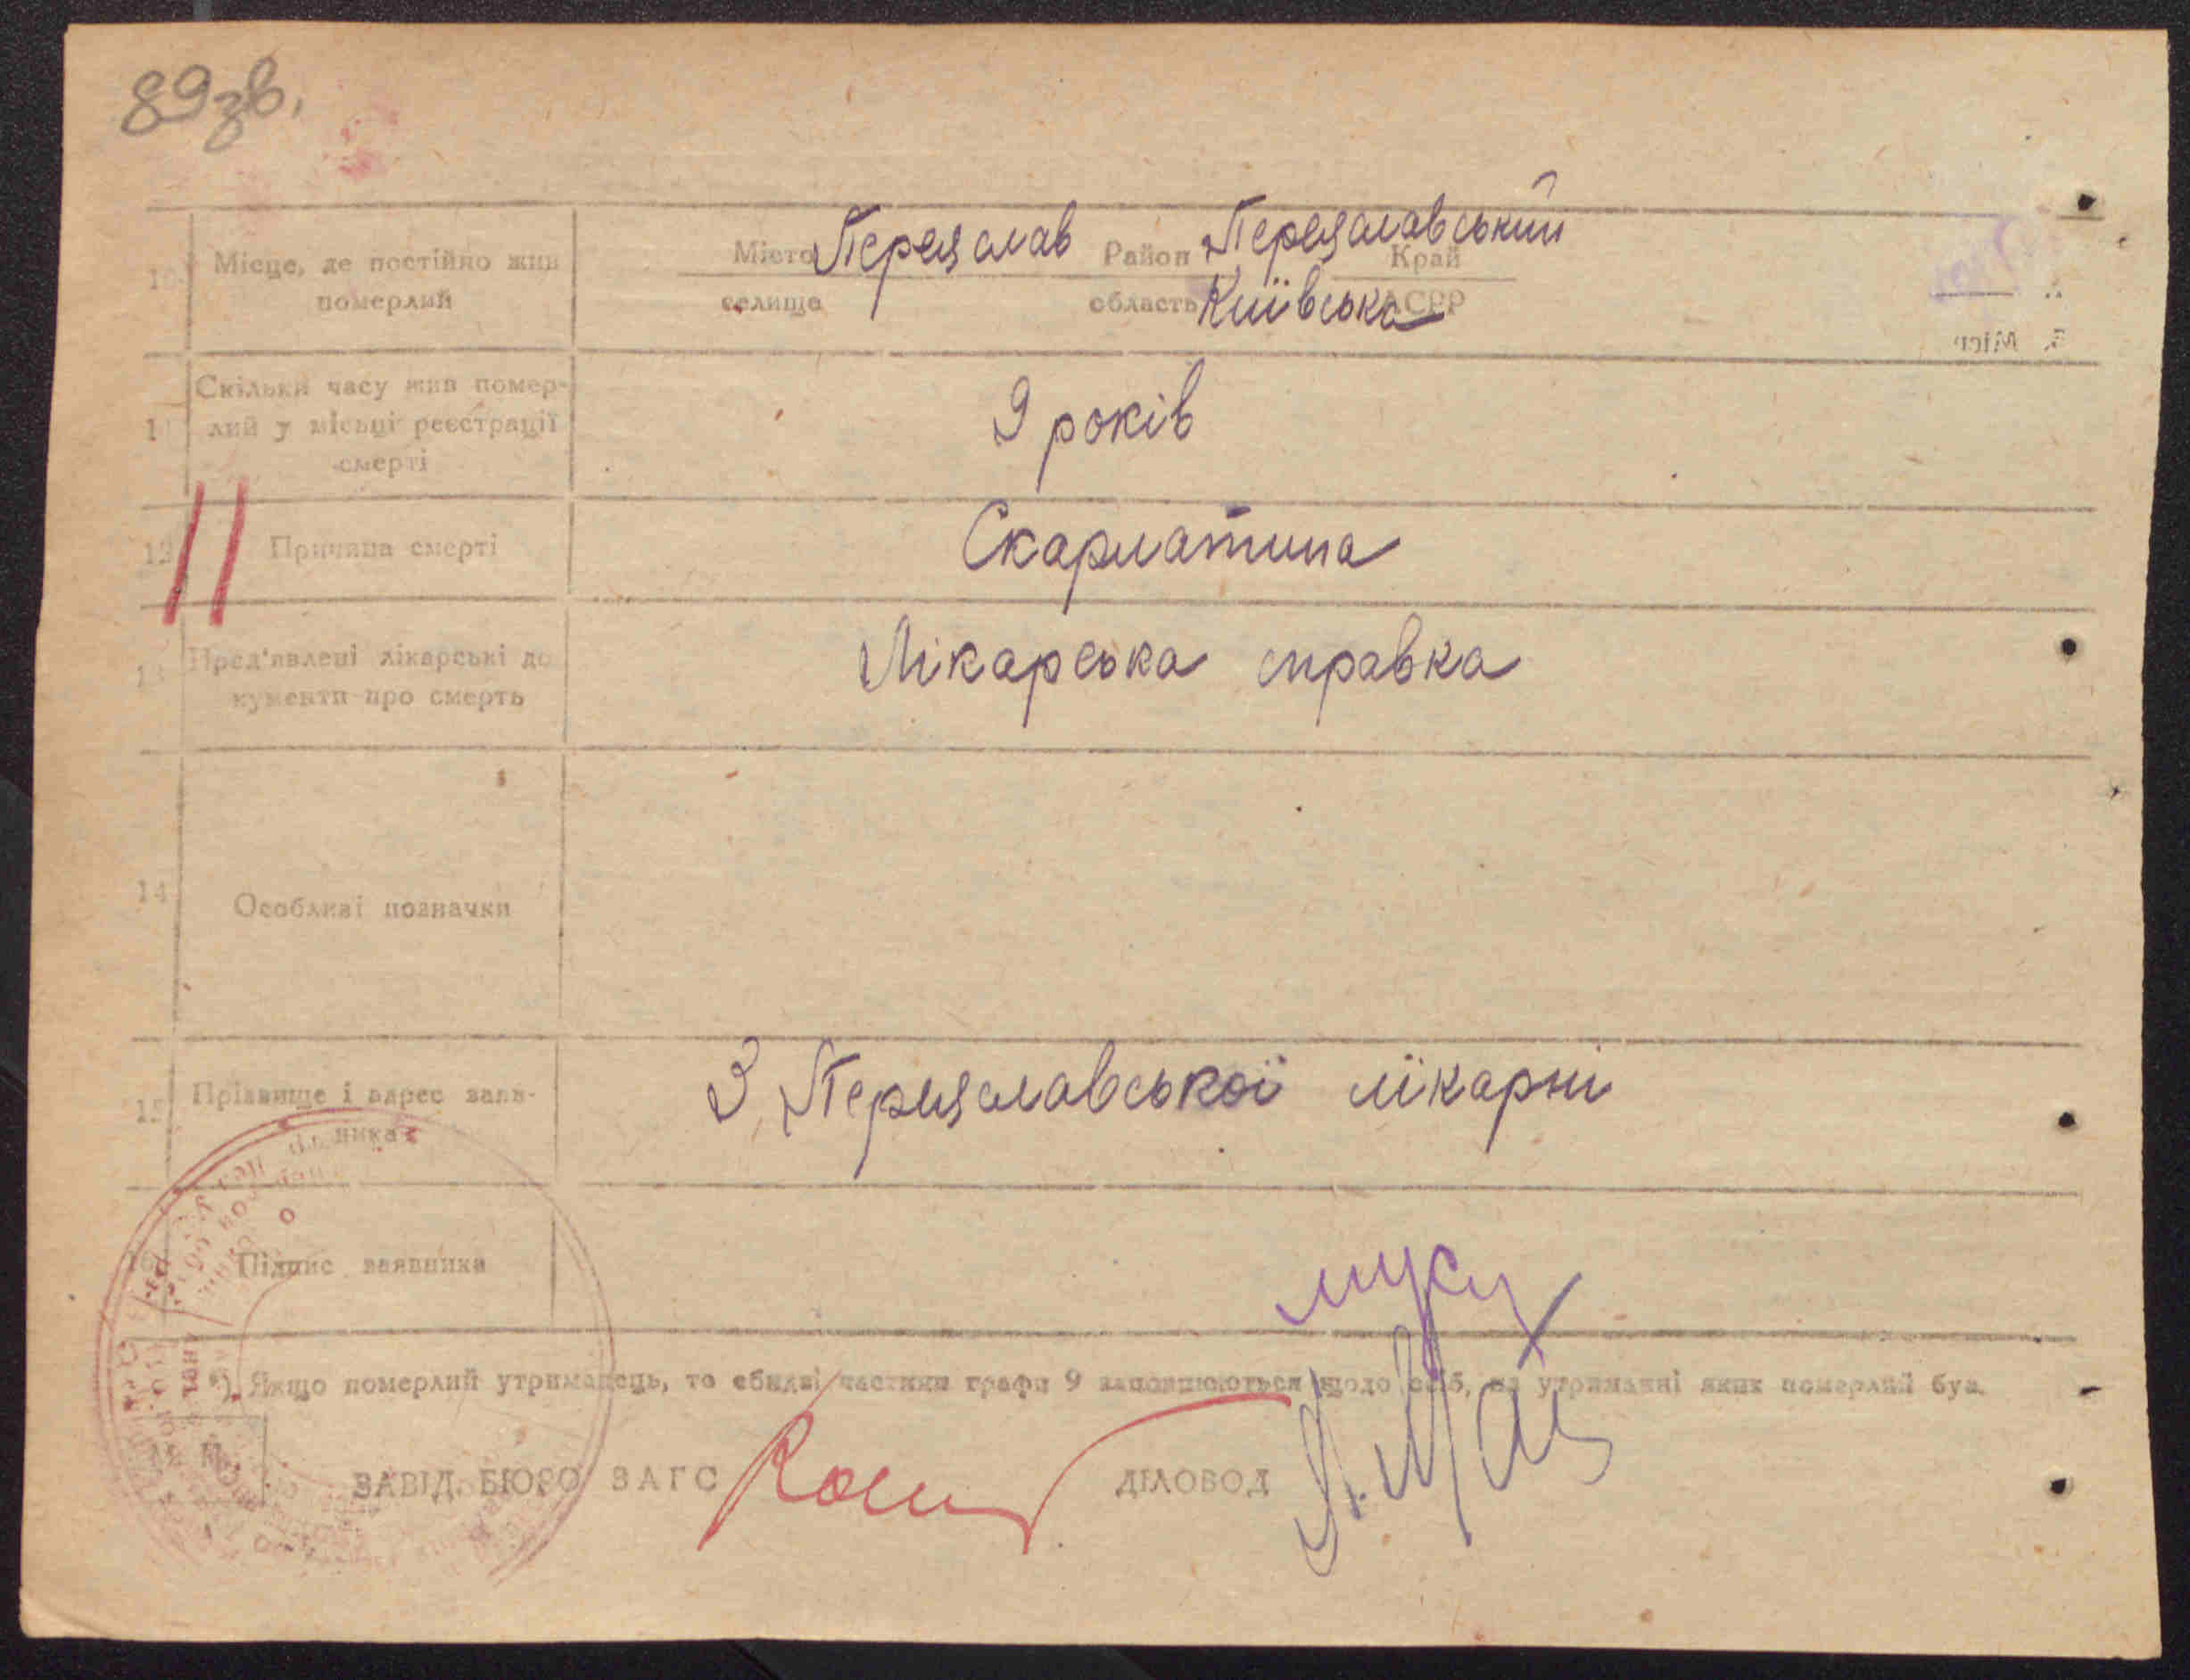 89зв.
10 Місце, де постійно жив
померлий
Місто Переяслав Район Переяславський Край
селище область Київська АСРР
11 Скільки часу жив помер-
лий у місьці реєстрації
смерті
9 років
12 Причина смерті Скарлатина
13 Пред'явлені лікарські до
кументи про смерть
Лікарська справка
14 Особливі позначки
15 Прізвище і адрес заяв-
ника
З Переяславської лікарні
16 Підпис заявника
*) Якщо померлий утриманець, то обидві частини графи 9 заповнюються щодо осіб, на утриманні яких померлий був.
М. П.
ЗАВІД. БЮРО ЗАГС ДІЛОВОД